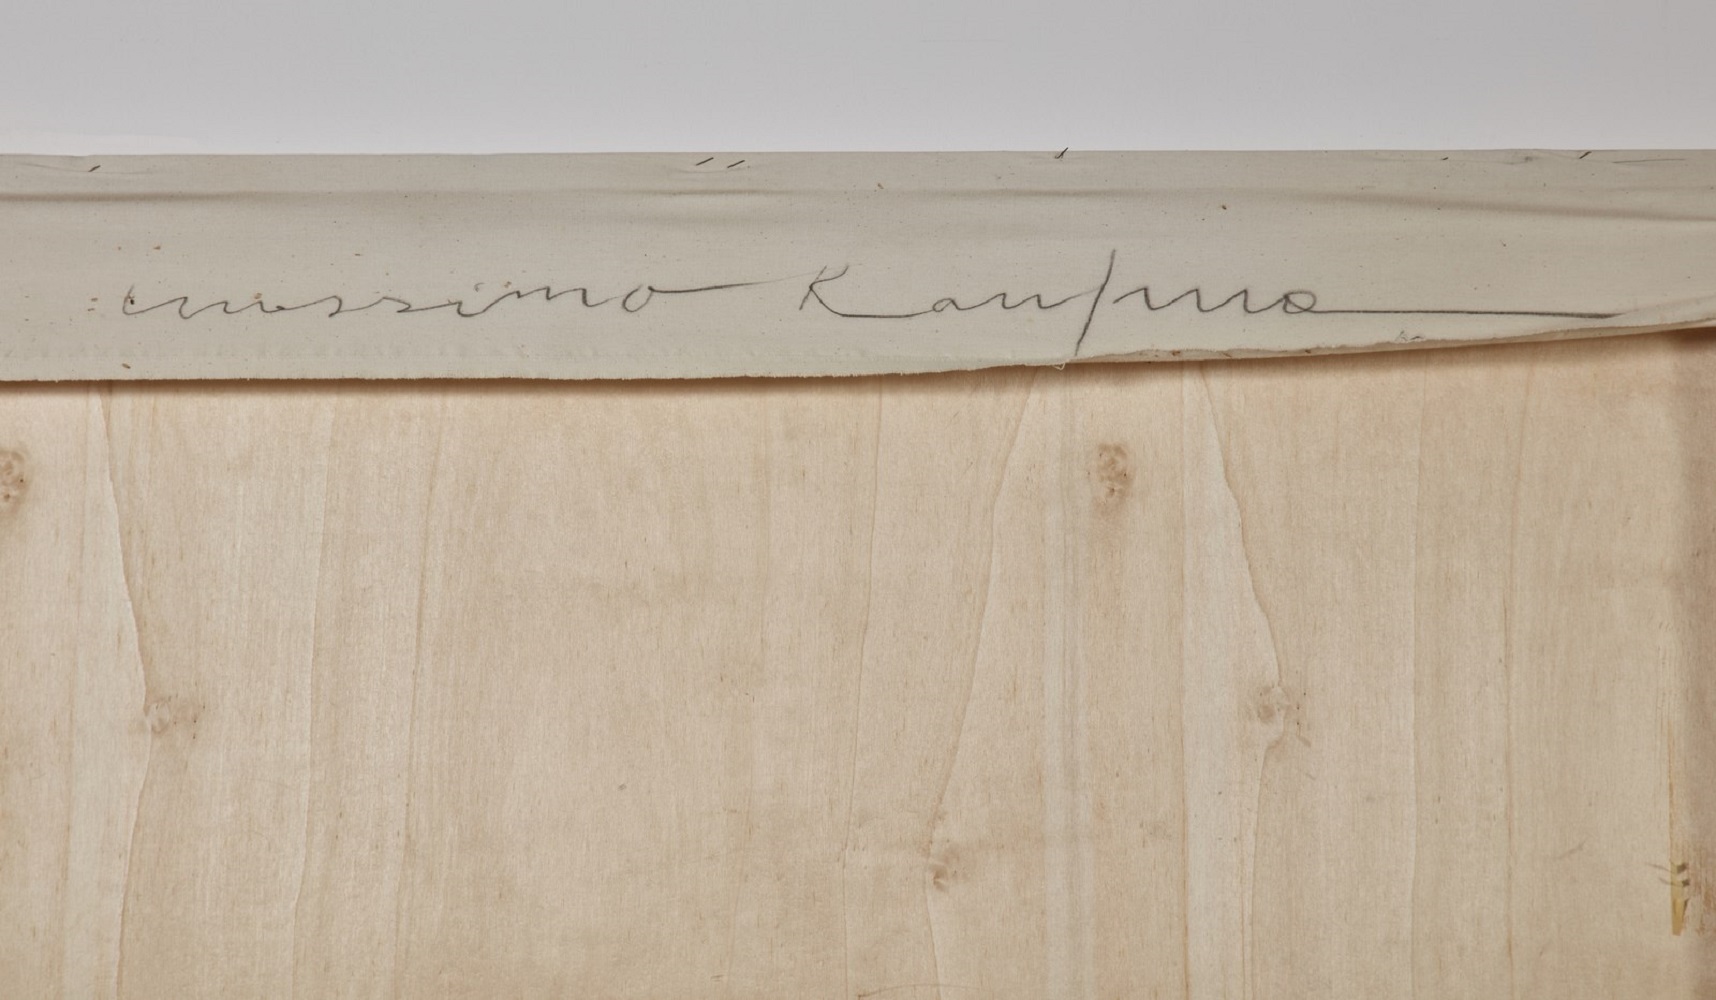 massimo Kaufma